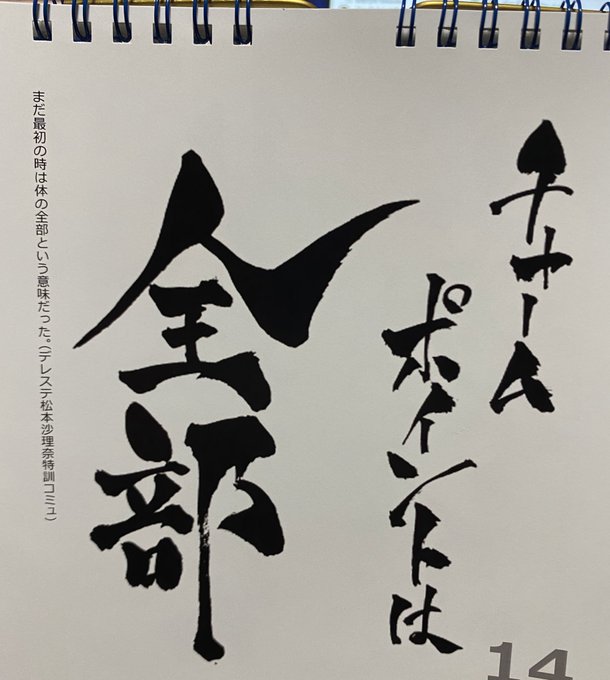 チャーム
ポイントは
全部
まだ最初の時は体の全部という意味だった。(デレステ松本沙理奈特訓コミュ)
14